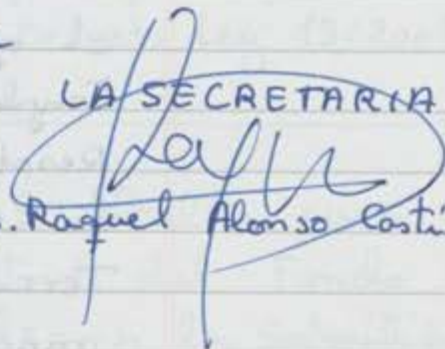 LA SECRETARIA
Raquel Alonso Casti